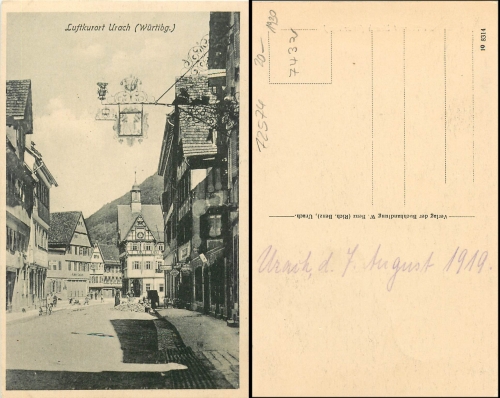 Luftkurort Urach (Württbg.)
1920
20—
7432
12574
19 8314
Verlag der Buchhandlung W. Benz (Rich. Benz), Urach.
Urach, d. 7. August 1919.